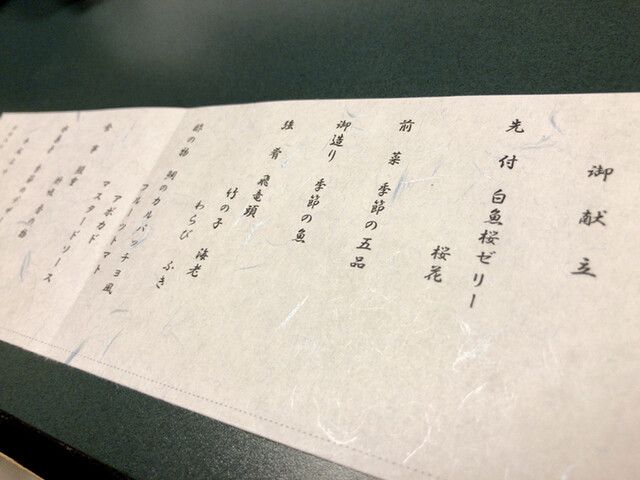 御献立
先付 白魚桜ゼリー
桜花
前菜 季節の五品
御造り 季節の魚
強肴 飛竜頭 海老
竹の子
わらび ふき
酢の物 鯛のカルパッチョ風
フルーツトマト
アボカド
マスタードソース
食事